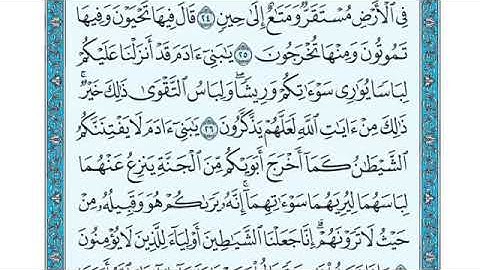 فِي ٱلۡأَرۡضِ مُسۡتَقَرّٞ وَمَتَٰعٌ إِلَىٰ حِينٖ ٢٤ قَالَ فِيهَا تَحۡيَوۡنَ وَفِيهَا
تَمُوتُونَ وَمِنۡهَا تُخۡرَجُونَ ٢٥ يَٰبَنِيٓ ءَادَمَ قَدۡ أَنزَلۡنَا عَلَيۡكُمۡ
لِبَاسٗا يُوَٰرِي سَوۡءَٰتِكُمۡ وَرِيشٗاۖ وَلِبَاسُ ٱلتَّقۡوَىٰ ذَٰلِكَ خَيۡرٞۚ
ذَٰلِكَ مِنۡ ءَايَٰتِ ٱللَّهِ لَعَلَّهُمۡ يَذَّكَّرُونَ ٢٦ يَٰبَنِيٓ ءَادَمَ لَا يَفۡتِنَنَّكُمُ
ٱلشَّيۡطَٰنُ كَمَآ أَخۡرَجَ أَبَوَيۡكُم مِّنَ ٱلۡجَنَّةِ يَنزِعُ عَنۡهُمَا
لِبَاسَهُمَا لِيُرِيَهُمَا سَوۡءَٰتِهِمَآۚ إِنَّهُۥ يَرَىٰكُمۡ هُوَ وَقَبِيلُهُۥ مِنۡ
حَيۡثُ لَا تَرَوۡنَهُمۡۗ إِنَّا جَعَلۡنَا ٱلشَّيَٰطِينَ أَوۡلِيَآءَ لِلَّذِينَ لَا يُؤۡمِنُونَ